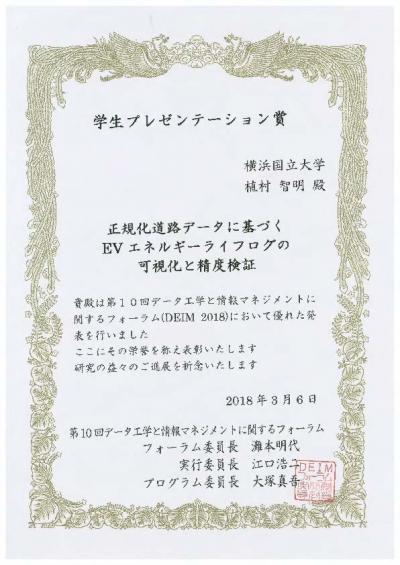 学生プレゼンテーション賞
横浜国立大学
植村 智明 殿
正規化道路データに基づく
EVエネルギーライフログの
可視化と精度検証
貴殿は第10回データ工学と情報マネジメントに
関するフォーラム(DEIM 2018)において優れた発
表を行いました
ここにその栄誉を称え表彰いたします
研究の益々のご進展を祈念いたします
2018年3月6日
第10回データ工学と情報マネジメントに関するフォーラム
フォーラム委員長 灘本明代
実行委員長 江口浩二
プログラム委員長 大塚真吾
DEIM
フォーラム